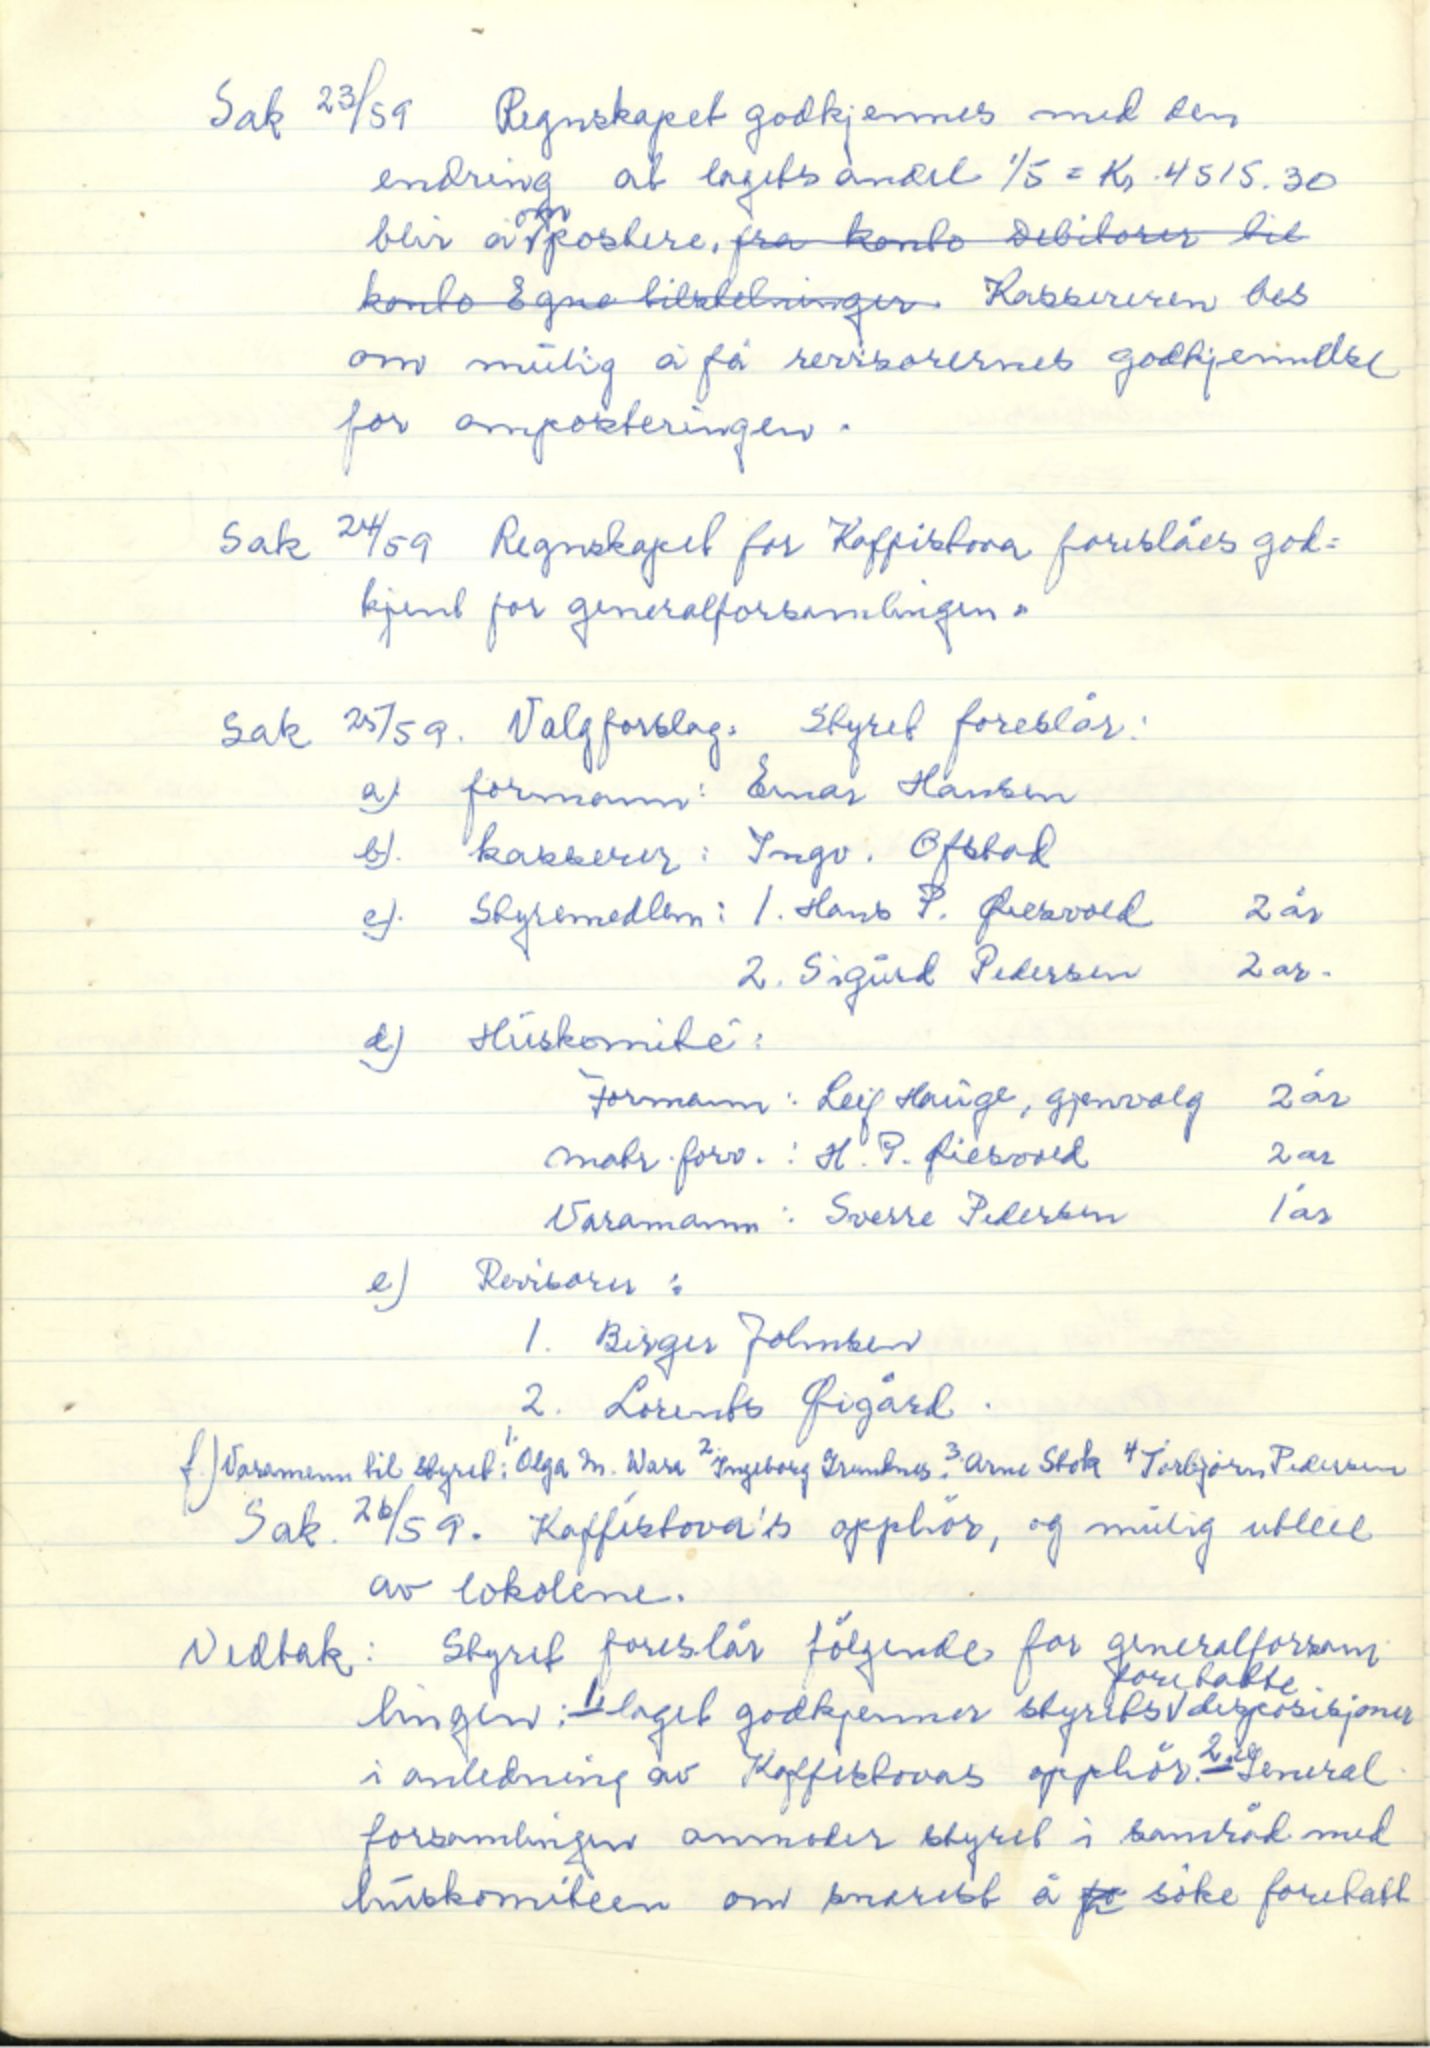 Sak 23/59 Regnskapet godkjennes med den
endring at lagets andel 1/5 = Kr. 4515.30
blir å ompostere, fra konto Debitorer til
konto Egne tilstelninger. Kassereren bes
om mulig å få revisorernes godkjennelse
for omposteringen.
Sak 24/59 Regnskapet for Kaffistova foreslåes god=
kjent for generalforsamlingen.
Sak 25/59. Valgforslag. Styret foreslår:
a). formann: Einar Hansen
b). kasserer: Ingv. Ofstad
c). Styremedlem: 1. Hans P. Øiesvold 2 år
2. Sigurd Pedersen 2 år.
d) Huskomité:
Formann: Leif Hauge, gjenvalg 2 år
Matr. forv.: H. P. Øiesvold 2 ar
Varamann: Sverre Pedersen 1 år
e) Revisorer:
1. Birger Johnsen
2. Lorents Øigård.
f.) Varamenn til styret: 1. Olga M. Wara 2. Ingeborg 3. Arne Stok 4 Torbjørn Pedersen
Sak. 26/59. Kaffistova's opphör, og mulig utleie
av lokalene.
Vedtak: Styret foreslår fölgende for generalforsam
lingen: 1. laget godkjenner styrets foretatte disposisjoner
i anledning av Kaffistovas opphör. 2. General
forsamlingen anmoder styret i samråd med
huskomiteen om snarest å få söke foretatt